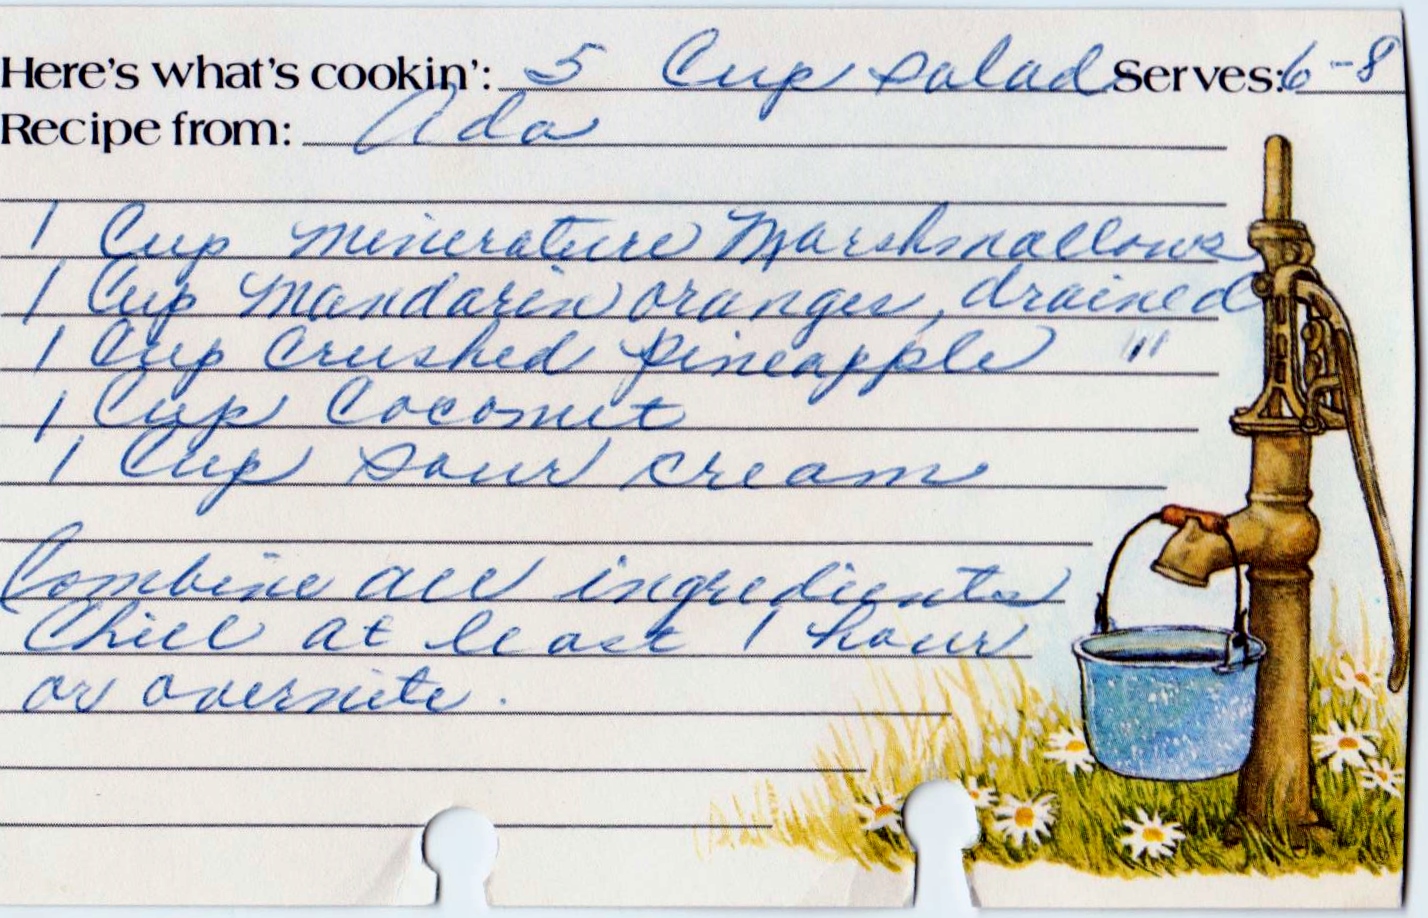 Here's what's cookin': 5 Cup Salad Serves: 6-8
Recipe from: Ada
1 Cup minerature Marshmallows
1 Cup Mandarin oranges, drained
1 Cup Crushed Pineapple "
1 Cup Coconut
1 Cup sour cream
Combine all ingredients
Chill at least 1 hour
or overnite.